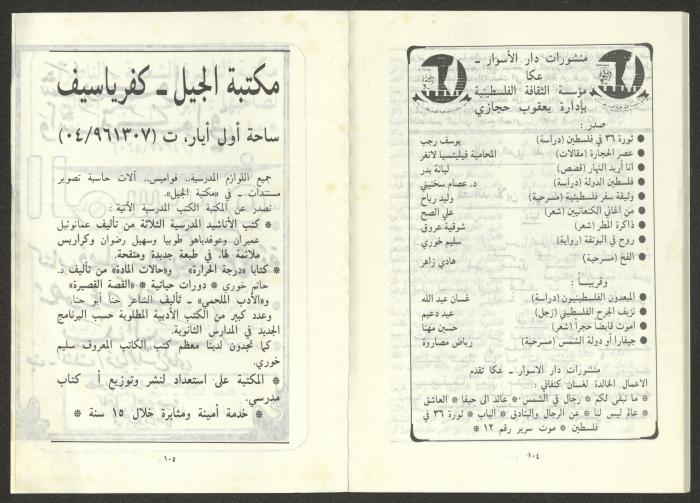 منشورات دار الأسوار ـ
عكا
مؤسسة الثقافة الفلسطينية
بإدارة يعقوب حجازي
صدر :
● ثورة ٣٦ في فلسطين (دراسة) يوسف رجب
● عصر الحجارة (مقالات) المحامية فيليتسيا لانغر
● انا أريد النهار (قصص) ليانة بدر
● فلسطين الدولة (دراسة) د. عصام سخنيني
● وثيقة سفر فلسطينية (مسرحية) وليد رباح
● من اغاني الكنعانيين (شعر) علي الصح
● ذاكرة المطر (شعر) شوقية عروق
● روح في البوتقة (رواية) سليم خوري
● الفخ (مسرحية) هادي زاهر
وقريباً :
● المبعدون الفلسطينيون (دراسة) غسان عبد الله
● نزيف الجرح الفلسطيني (زجل) عيد دعيم
● اموت قابضا حجراً (شعر) حسين مهنا
● جيفارا أو دولة الشمس (مسرحية) رياض مصاروة
منشورات دار الاسوار ـ عكا تقدم
الاعمال الخالدة لغسان كنفاني :
* ما تبقى لكم * رجال في الشمس * عائد الى حيفا * العاشق
* عالم ليس لنا * عن الرجال والبنادق * الباب * ثورة ٣٦ في
فلسطين * موت سرير رقم ١٢ *
١٠٤
مكتبة الجيل ـ كفرياسيف
ساحة أول أيار، ت (٠٤/٩٦١٣٠٧)
جميع اللوازم المدرسية.. قواميس.. آلات حاسبة تصوير
مستندات ـ في «مكتبة الجيل».
تصدر عن المكتبة الكتب المدرسية الآتية :
* كتب الأناشيد المدرسية الثلاثة من تأليف عمانوئيل
عميران وعوفدياهو طوبيا وسهيل رضوان وكراريس
ملائمة لها. في طبعة جديدة ومنقحة.
* كتابا «درجة الحرارة» و«حالات المادة» من تأليف د.
حاتم خوري * دورات حياتية * «القصة القصيرة»
و«الأدب الملحمي» ـ تأليف الشاعر حنا أبو حنا.
وعدد كبير من الكتب الأدبية المطلوبة حسب البرنامج
الجديد في المدارس الثانوية.
كما تجدون لدينا معظم كتب الكاتب المعروف سليم
خوري.
* المكتبة على استعداد لنشر وتوزيع أ كتاب
مدرسي.
* خدمة أمينة ومثابرة خلال ١٥ سنة *
١٠٥